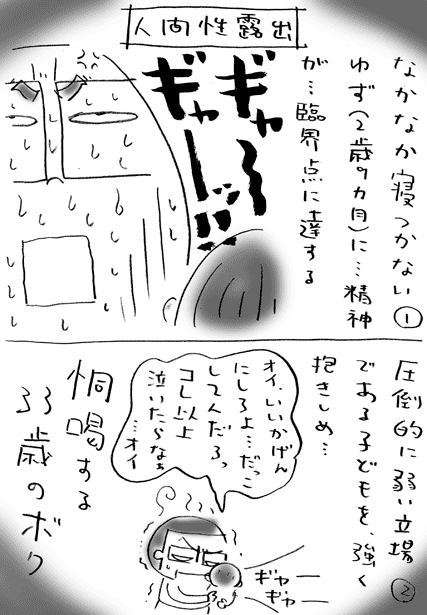 人間性露出
なかなか寝つかない①
ゆず(2歳9カ月)に…精神
が…臨界点に達する
ギャ〜
ギャーーッ!!
圧倒的に弱い立場②
である子どもを、強く
抱きしめ…
オイ、いいかげん
にしろよ…だっこ
してんだろっ
コレ以上
泣いたらなぁ
…オイ
恫喝する
33歳のボク
ギャー
ギャー